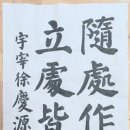 隨處作
立處皆
宇宰徐慶源